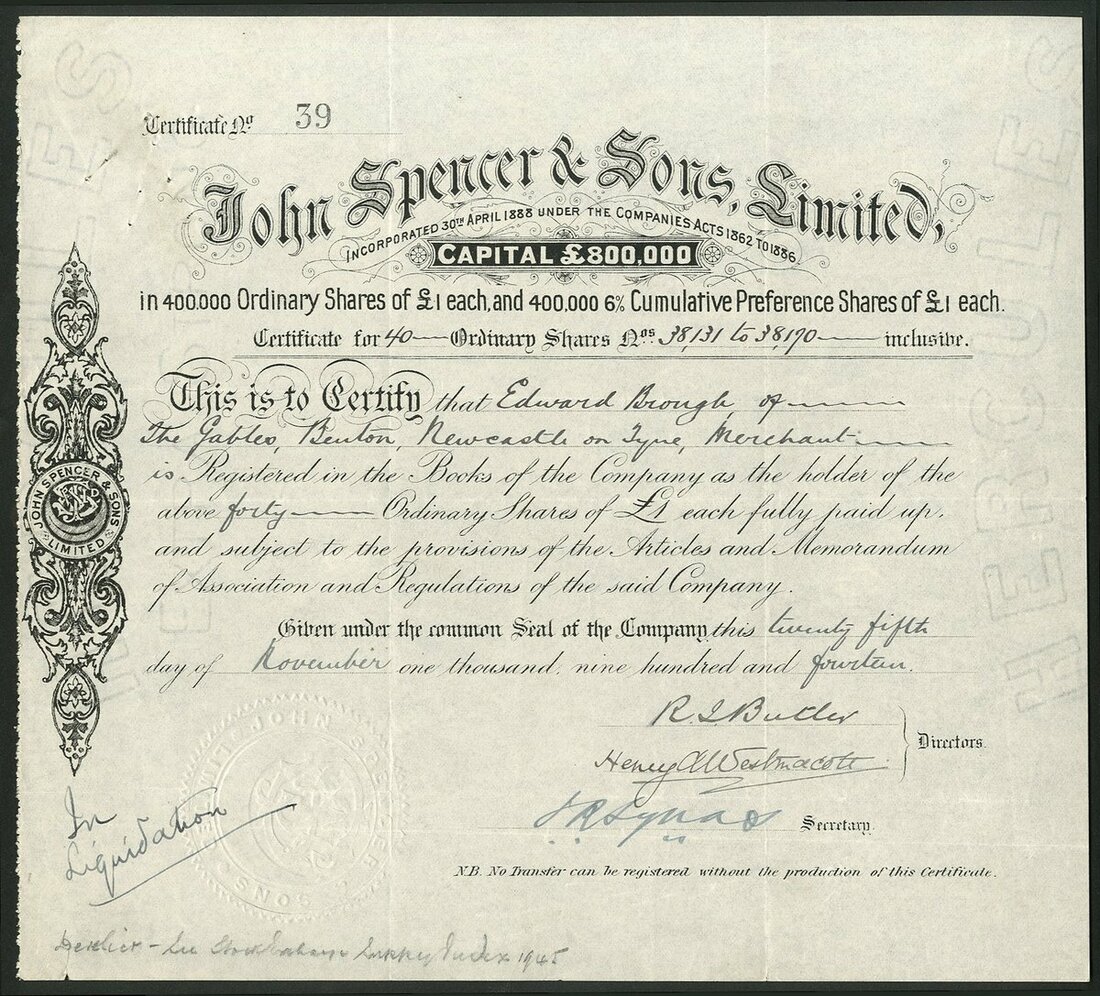 Certificate No 39
John Spencer & Sons, Limited,
INCORPORATED 30TH APRIL 1888 UNDER THE COMPANIES ACTS 1862 TO 1886
CAPITAL £800,000
in 400.000 Ordinary Shares of £1 each, and 400,000 6% Cumulative Preference Shares of £1 each.
Certificate for 40 Ordinary Shares Nos 38,131 to 38,170 inclusive.
This is to Certify that Edward Brough, of
The Gables, Benton, Newcastle on Tyne, Merchant
is Registered in the Books of the Company as the holder of the
above forty Ordinary Shares of £1 each fully paid up,
and subject to the provisions of the Articles and Memorandum
of Association and Regulations of the said Company.
Given under the common Seal of the Company, this twenty fifth
day of November one thousand, nine hundred and fourteen.
JOHN SPENCER & SONS
LIMITED
R. S. Butler
Henry A Westmacott
Directors.
Secretary.
JOHN SPENCER
SONS
In
Liquidation
N.B. No Transfer can be registered without the production of this Certificate.
See Index 1945
HERCULES